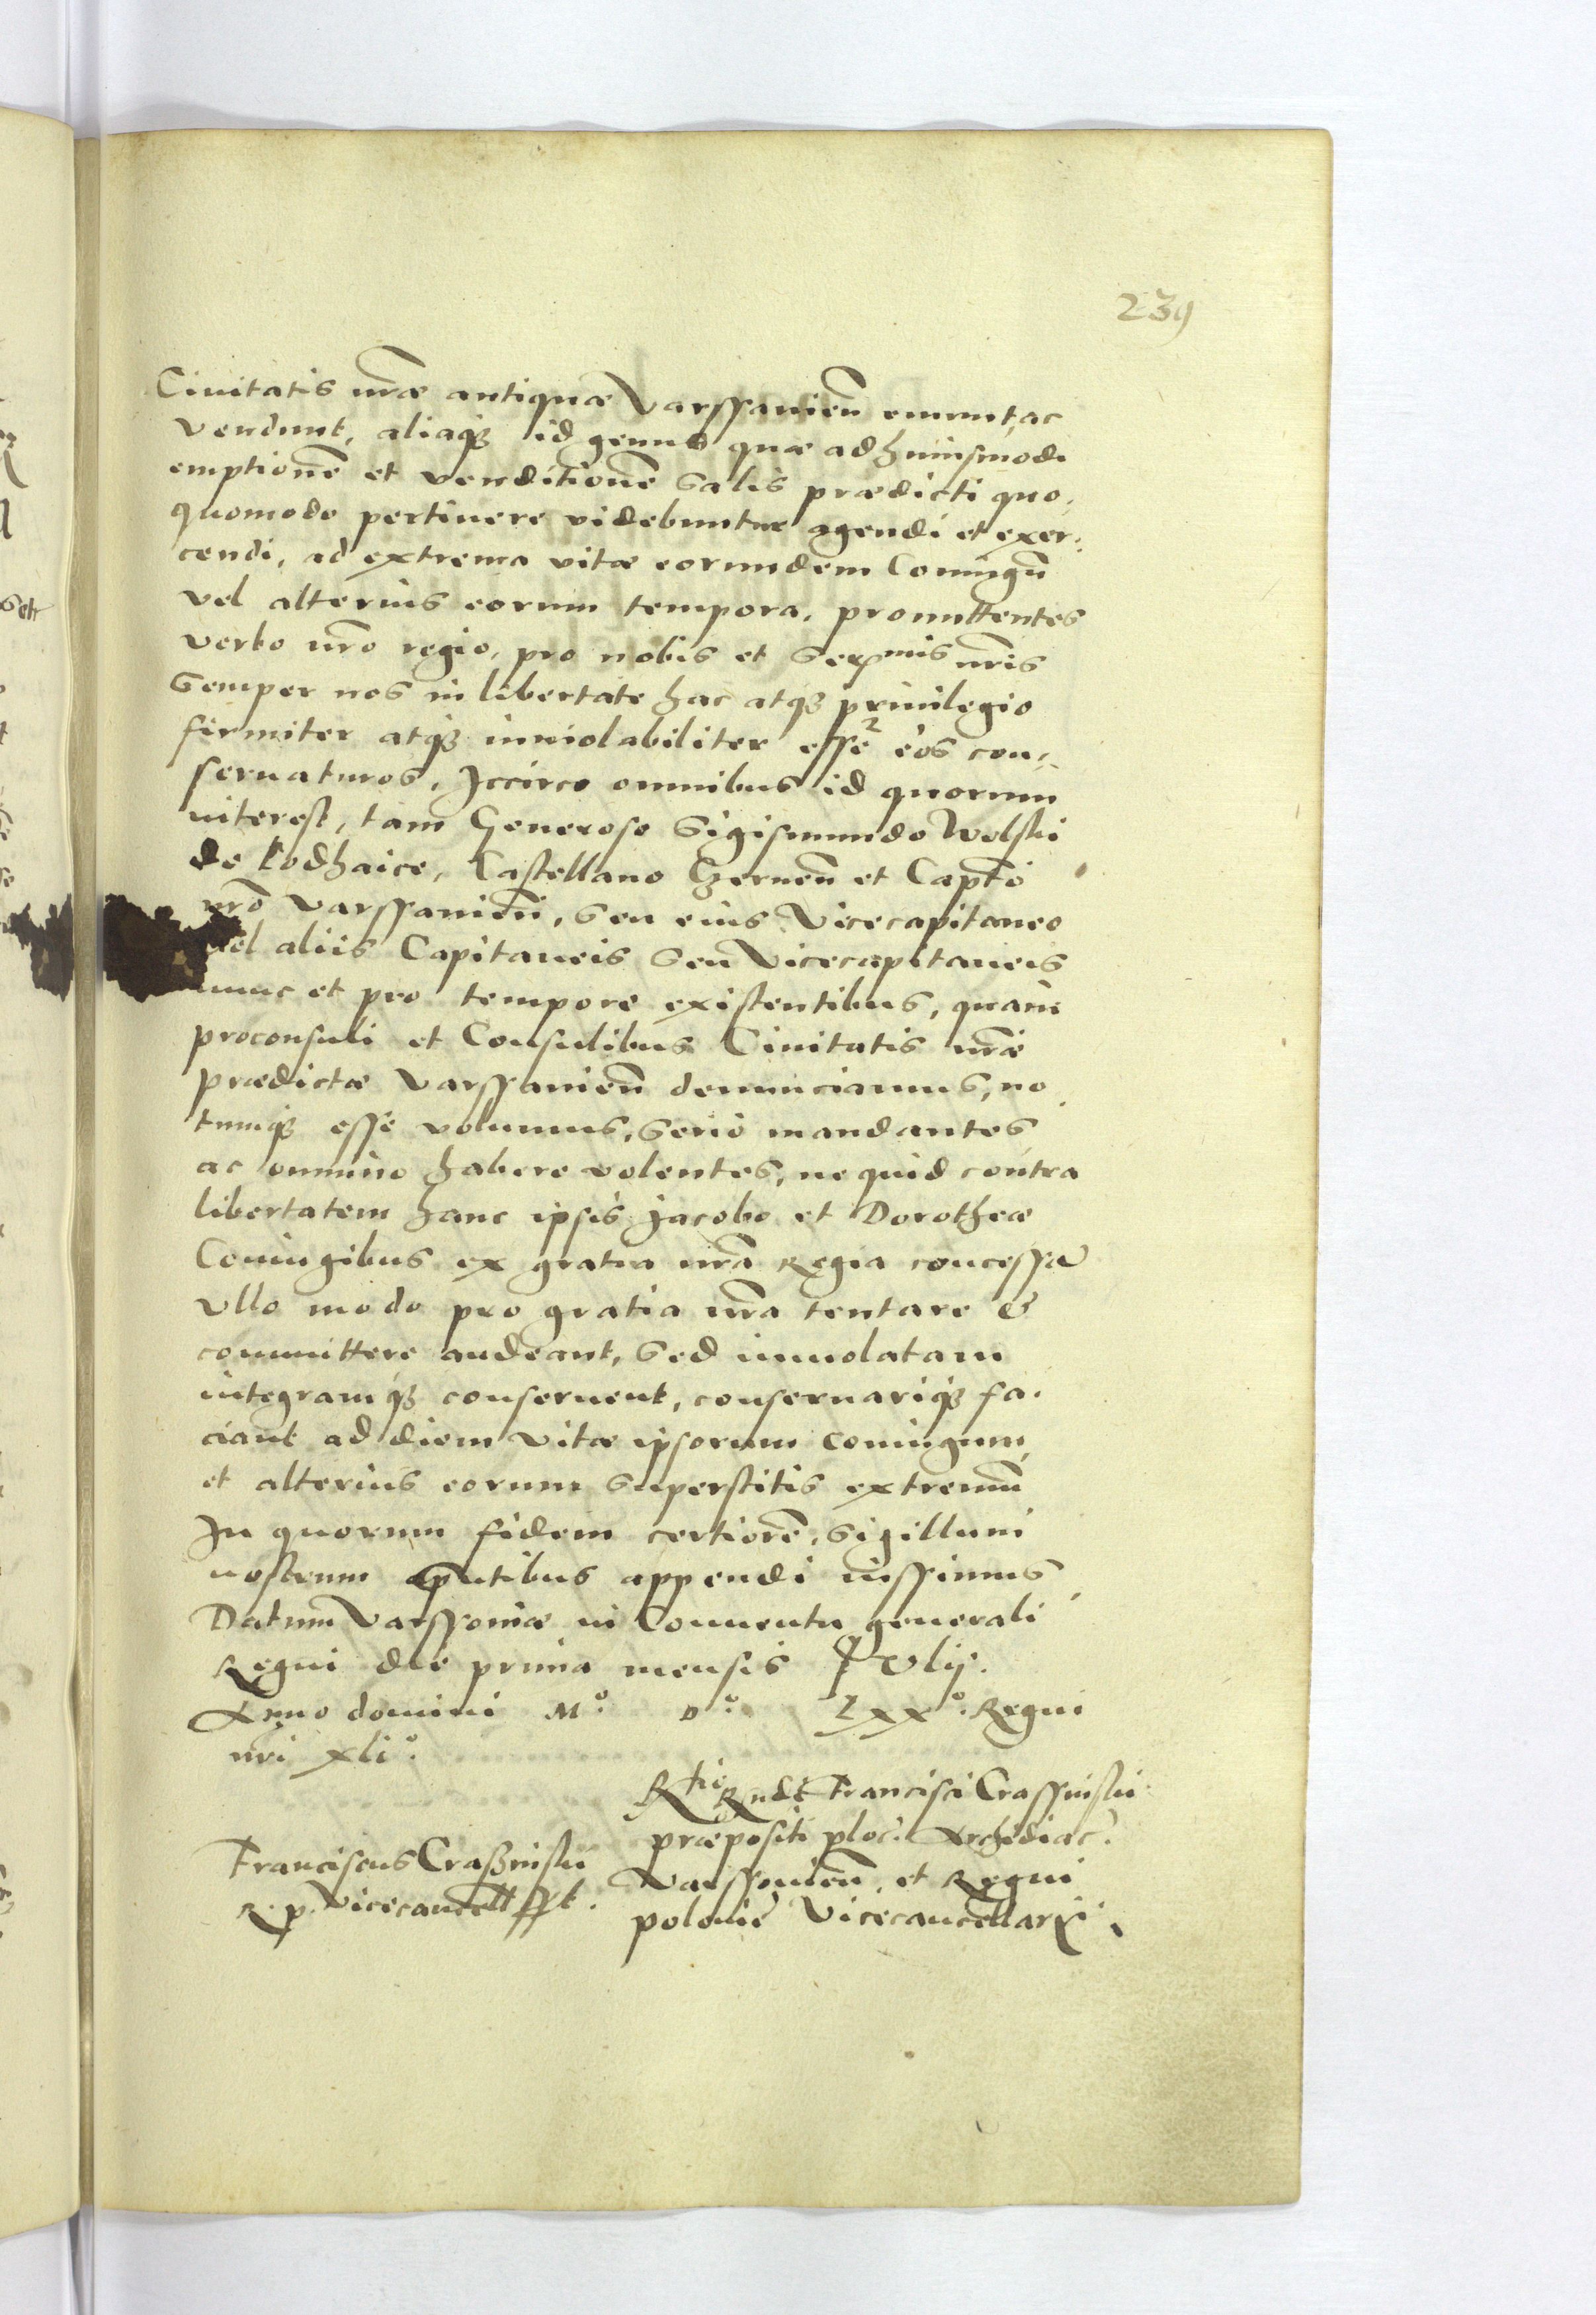 239
Ciuitatis nr̃æ antiquæ Varssauien̄ emunt, ac
vendunt, aliaqȝ id genus quæ ad huiusmodi
emptionē et venditionē salis prædicti quo,
quomodo pertinere videbuntur agendi et exer,
cendi, ad extrema vitæ eorundem Coniugū
vel alterius eorum tempora, promittentes
verbo nr̃o regio, pro nobis et Serᵐⁱˢ nr̃is
semper nos in libertate hac atqȝ priuilegio
firmiter atqȝ inuiolabiliter esse eos con,
seruaturos, Iccirco omnibus id quorum
interest, tam Generoso Sigismundo Wolski
de Podhaice, Castellano Czernen̄ et Capt̃o
nr̃o Varssauien̄, seu eius Vicecapitaneo
vel aliis Capitaneis seu Vicecapitaneis
nunc et pro tempore existentibus, quam
proconsuli et Consulibus Ciuitatis nr̃æ
prædictæ Varssauien̄ denunciamus, no,
tumqȝ esse volumus, serio mandantes
ac omnino habere volentes, ne quid contra
libertatem hanc ipsis Jacobo et Dorotheæ
Coniugibus ex gratia nr̃a Regia concessā
vllo modo pro gratia nr̃a tentare &
committere audeant, sed inuiolatam
integramqȝ conseruent, conseruariqȝ fa,
ciant ad diem vitæ ipsorum coniugum,
et alterius eorum superstitis extremū
In quorum fidem certiorē, sigillum
nostrum pn̄tibus appendi iussimus
Datum Varssouiæ in Conuentu generali
Regni die prima mensis Iulij.
Anno domini M.º D.º Lxx.º Regni
nr̃i xli.º
Franciscus Craßinski
R. p. Vicecancell sst.
Rtio Rndi Francisci Crassinski
præpositi ploc. Archidiac.
Varssouien̄. et Regni
polonie Vicecancellarij.